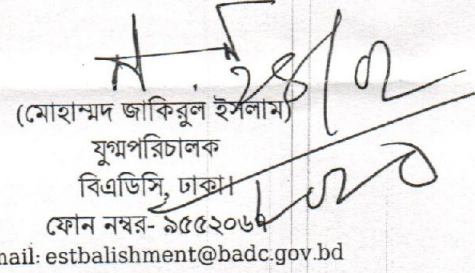 ২৪/০২
(মোহাম্মদ জাকিরুল ইসলাম)
যুগ্মপরিচালক
বিএডিসি, ঢাকা।
ফোন নম্বর- ৯৫৫২০৬
nail: estbalishment@badc.gov.bd